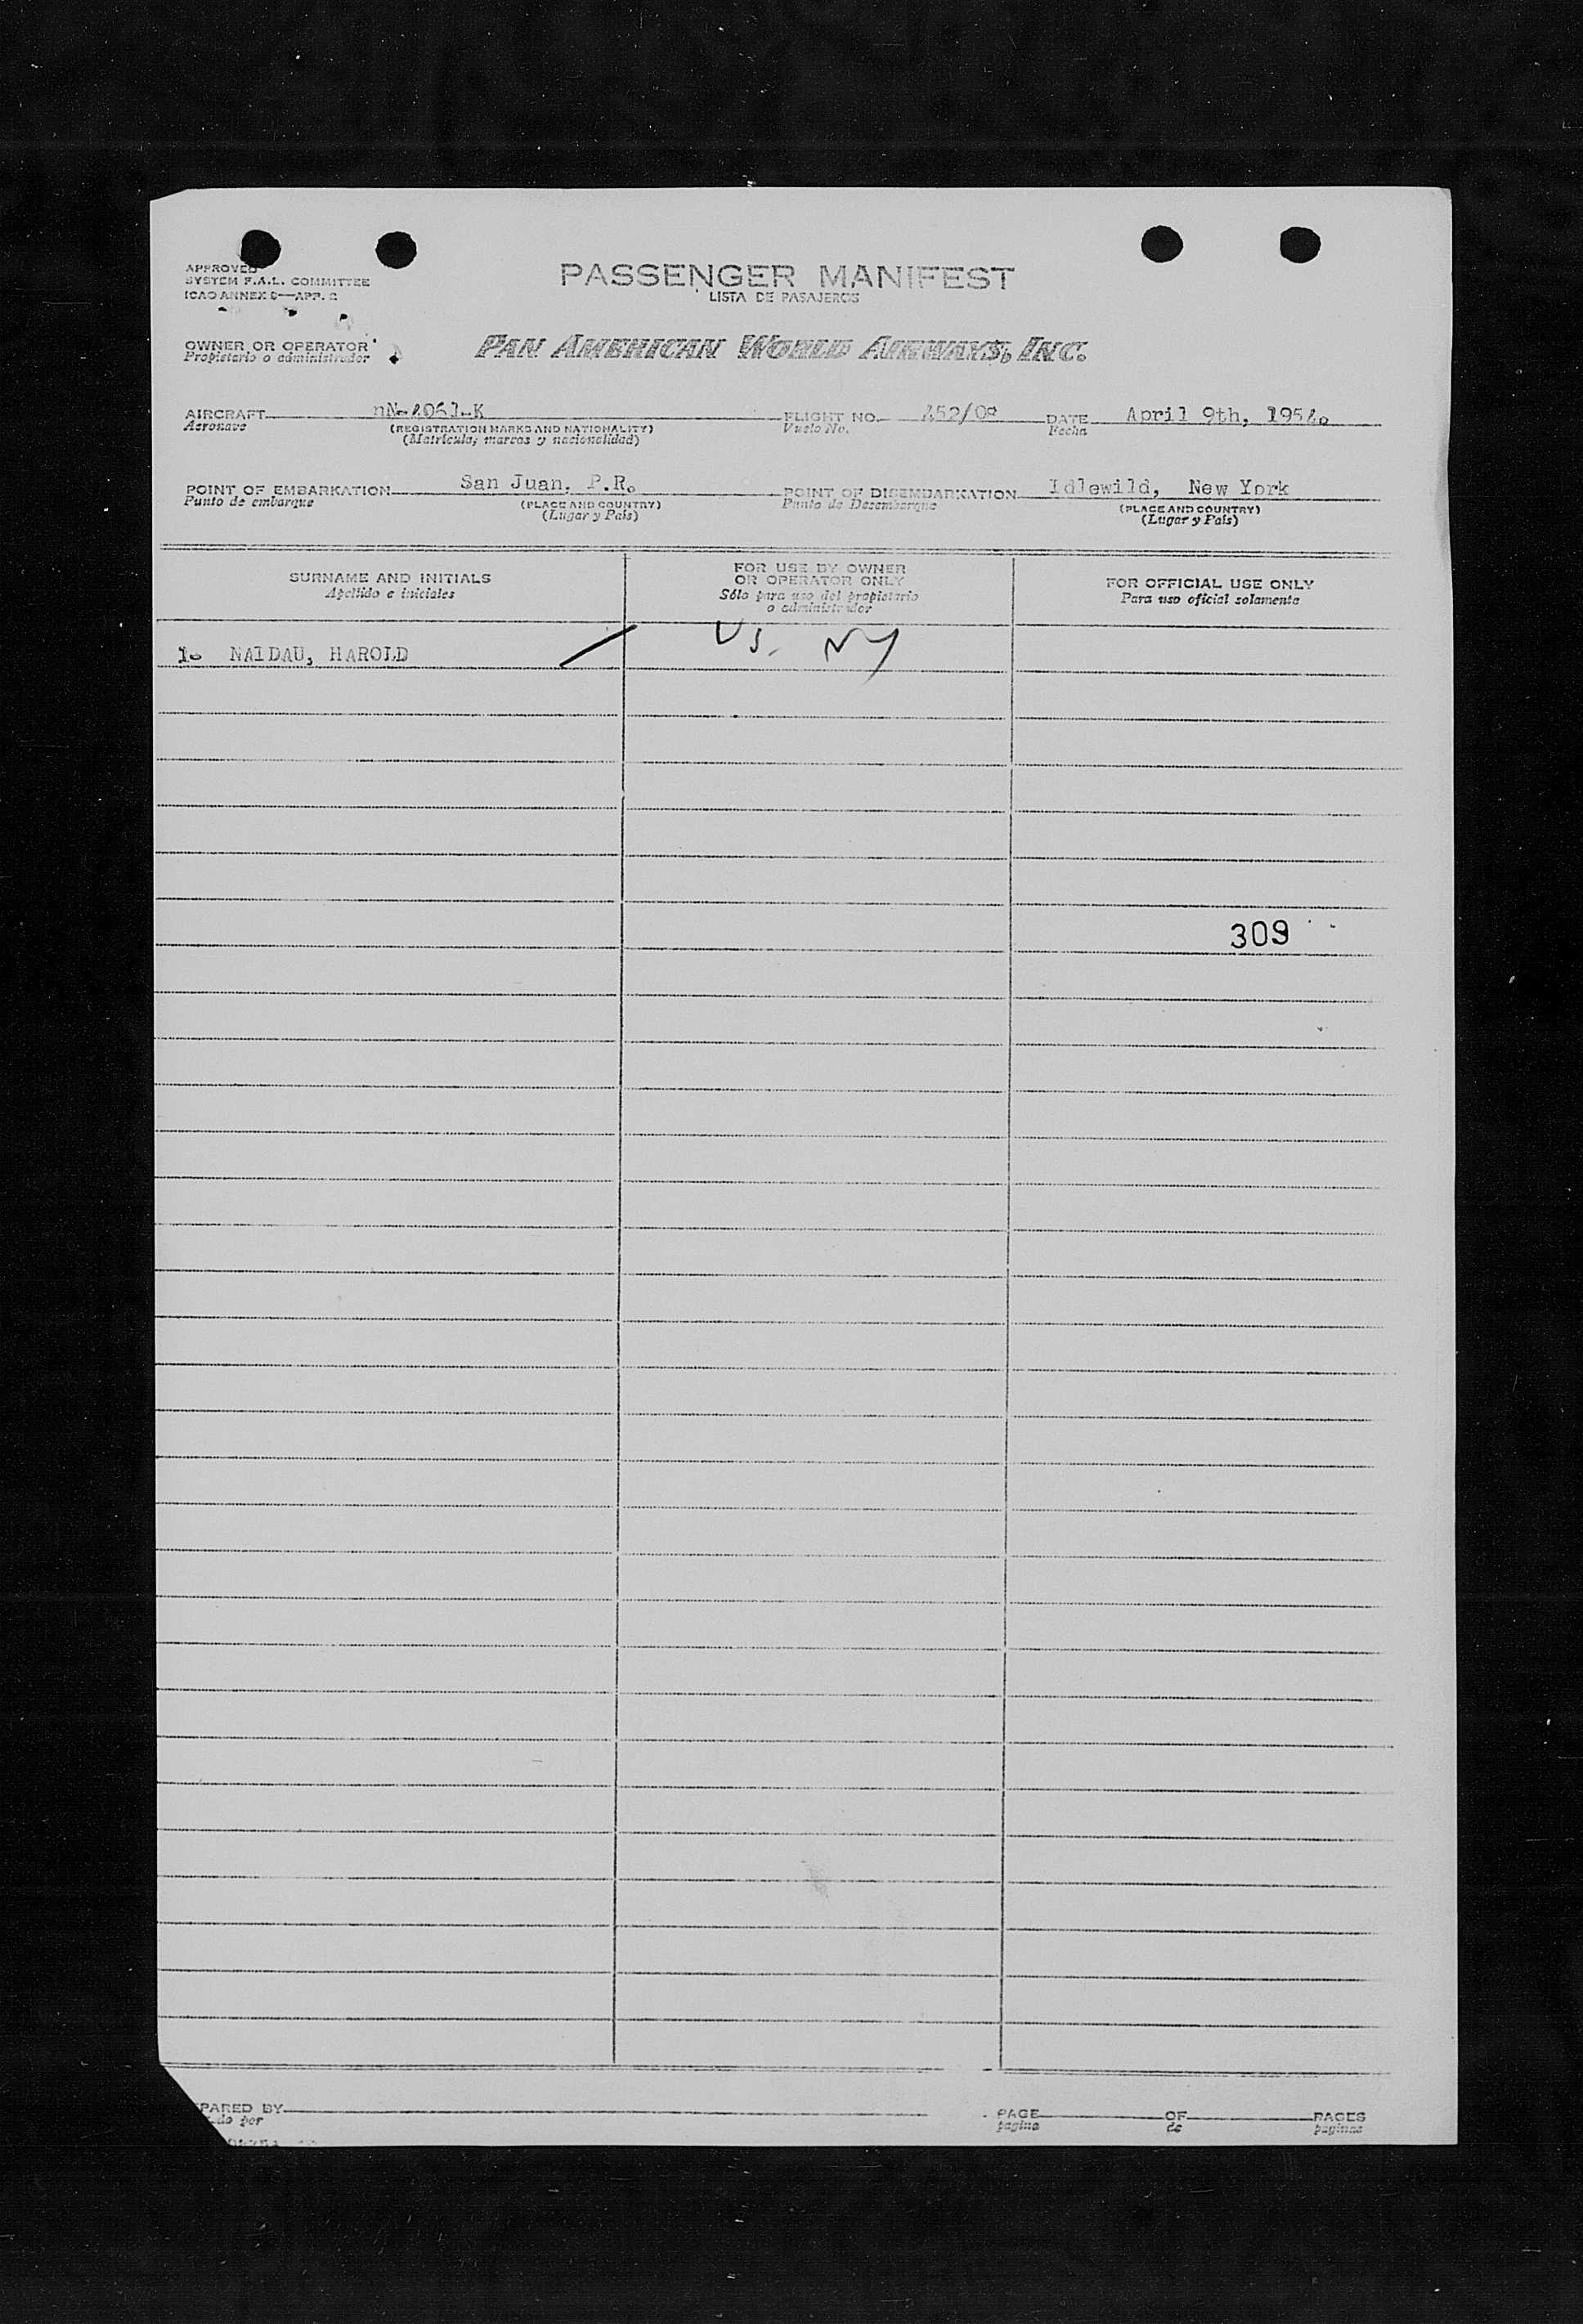 APPROVED
SYSTEM F.A.L. COMMITTEE
ICAO ANNEX 9—APP. C
PASSENGER MANIFEST
LISTA DE PASAJEROS
OWNER OR OPERATOR
Propietario o administrador
PAN AMERICAN WORLD AIRWAYS, INC.
AIRCRAFT nN-4061-K FLIGHT NO. 452/09 DATE April 9th, 1954.
Aeronave (REGISTRATION MARKS AND NATIONALITY) Vuelo No. Fecha
(Matrícula, marcas y nacionalidad)
POINT OF EMBARKATION San Juan, P.R. POINT OF DISEMBARKATION Idlewild, New York
Punto de embarque (PLACE AND COUNTRY) Punto de Desembarque (PLACE AND COUNTRY)
(Lugar y País) (Lugar y País)
SURNAME AND INITIALS
Apellido e iniciales
FOR USE BY OWNER
OR OPERATOR ONLY
Sólo para uso del propietario
o administrador
FOR OFFICIAL USE ONLY
Para uso oficial solamente
1. NAIDAU, HAROLD US. NY
309
PARED BY PAGE OF PAGES
do por pagina de paginas